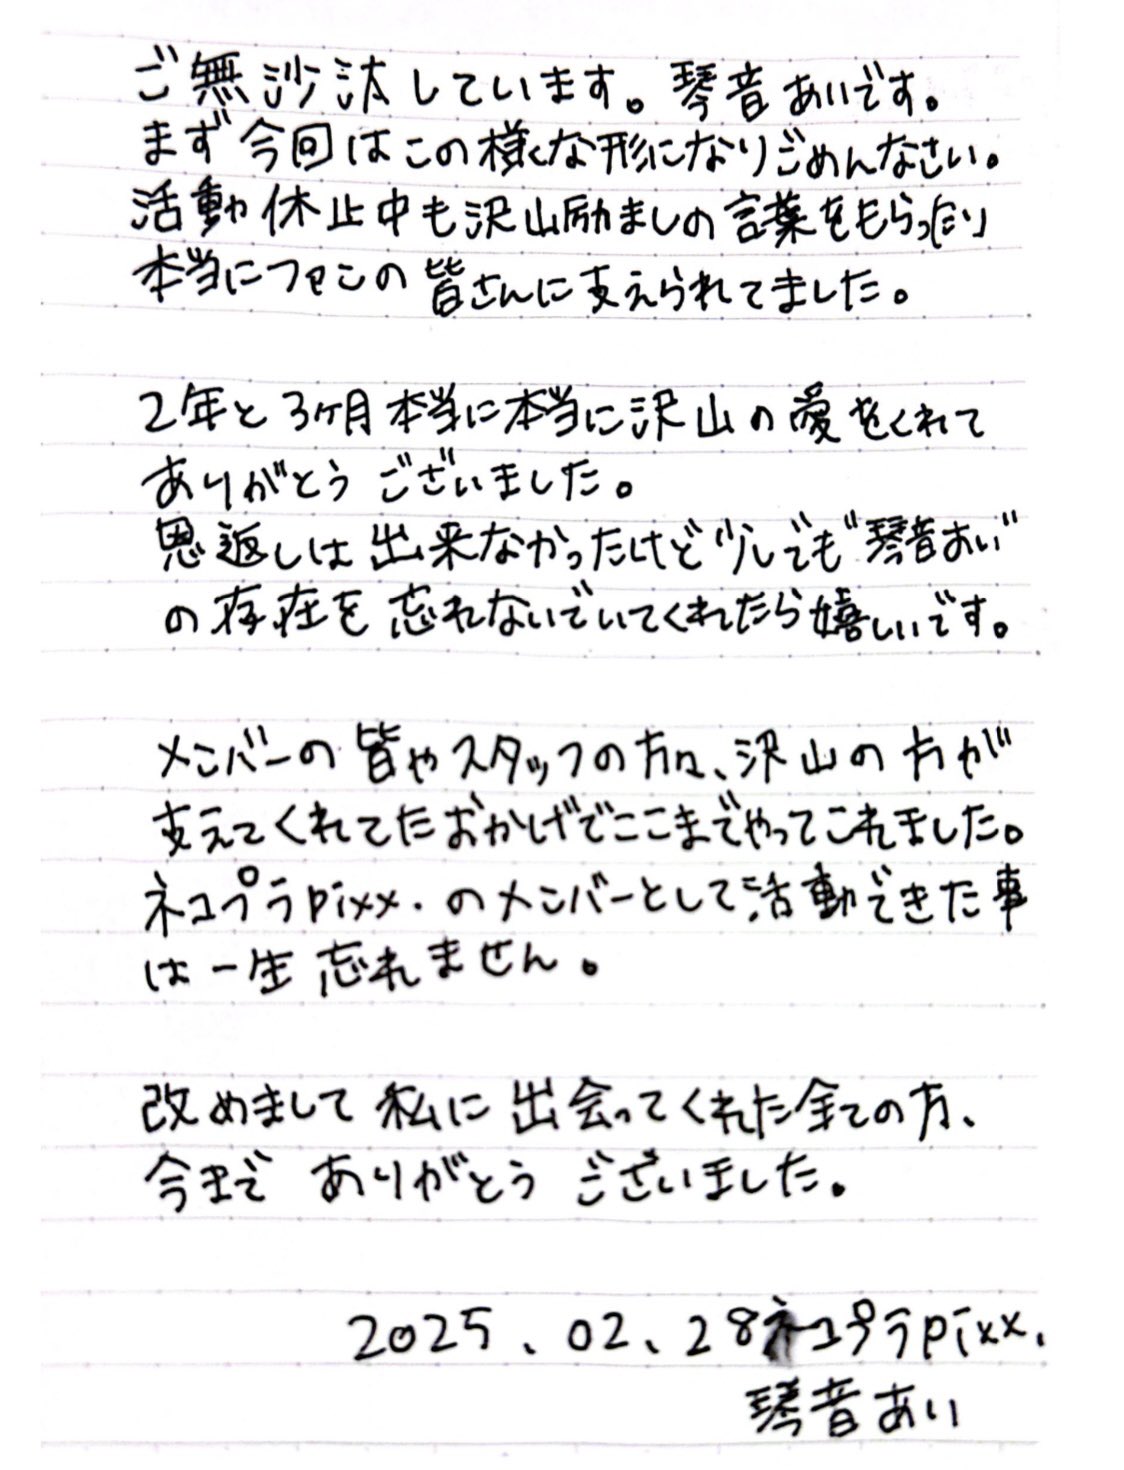 ご無沙汰しています。琴音あいです。
まず今回はこの様な形になりごめんなさい。
活動休止中も沢山励ましの言葉をもらったり
本当にファンの皆さんに支えられてました。
2年と3ヶ月本当に本当に沢山の愛をくれて
ありがとうございました。
恩返しは出来なかったけど少しでも"琴音あい"
の存在を忘れないでいてくれたら嬉しいです。
メンバーの皆やスタッフの方々、沢山の方が
支えてくれてたおかげでここまでやってこれました。
ネコプラpixx.のメンバーとして活動できた事
は一生忘れません。
改めまして私に出会ってくれた全ての方、
今までありがとうございました。
2025.02.28ネコプラpixx.
琴音あい